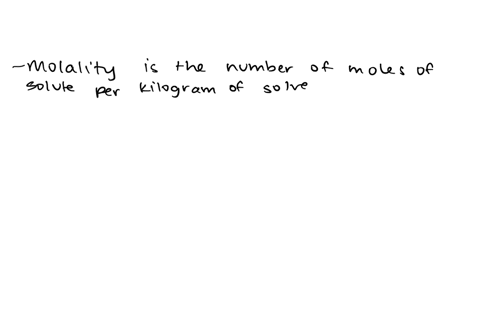 - Molality is the number of moles of
solute per kilogram of solve